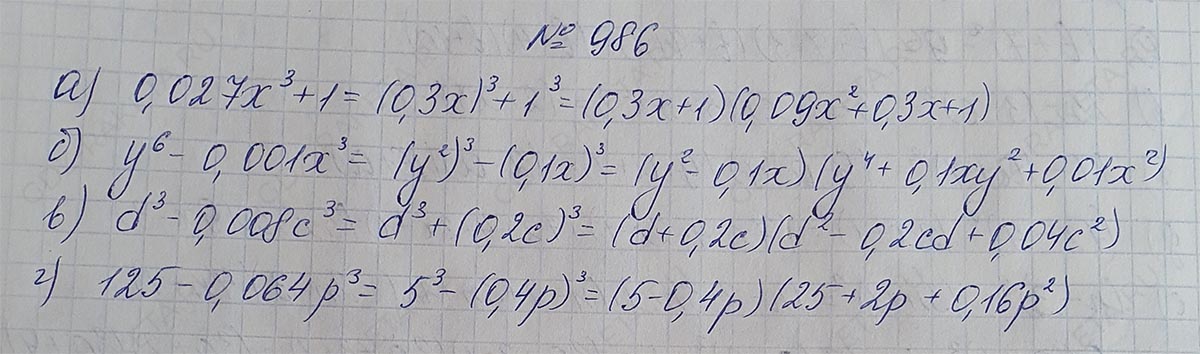 № 986
а) 0,027x³+1 = (0,3x)³+1³ = (0,3x+1)(0,09x²+0,3x+1)
б) y⁶ - 0,001x³ = (y²)³ - (0,1x)³ = (y² - 0,1x)(y⁴ + 0,1xy² + 0,01x²)
в) d³ - 0,008c³ = d³ + (0,2c)³ = (d+0,2c)(d² - 0,2cd + 0,04c²)
г) 125 - 0,064p³ = 5³ - (0,4p)³ = (5-0,4p)(25 + 2p + 0,16p²)